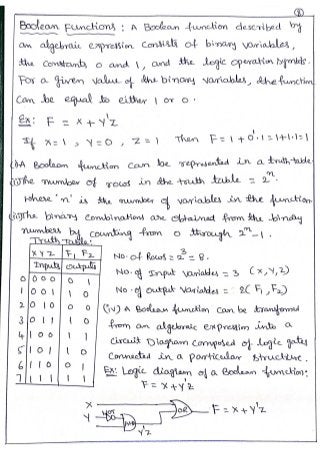 Boolean Functions : A Boolean function described by
an algebraic expression consists of binary variables,
the constants 0 and 1, and the logic operation symbols.
For a given value of the binary variables, the function
can be equal to either 1 or 0.
Ex: F = x + y'z
If x=1, y=0, z=1 Then F = 1 + 0'.1 = 1+1.1 = 1
(i) A Boolean function can be represented in a truth-table
(ii) The number of rows in the truth table = 2ⁿ.
where 'n' is the number of variables in the function
(iii) The binary combinations are obtained from the binary
numbers by counting from 0 through 2ⁿ-1.
Truth Table:
x y z F₁ F₂
Inputs outputs
0 0 0 0 0 1
1 0 0 1 1 0
2 0 1 0 0 0
3 0 1 1 1 0
4 1 0 0 1 1
5 1 0 1 1 0
6 1 1 0 0 1
7 1 1 1 1 1
No. of Rows = 2³ = 8.
No. of Input variables = 3 (x, y, z)
No. of output variables = 2 (F₁, F₂)
(iv) A Boolean function can be transformed
from an algebraic expression into a
circuit Diagram composed of logic gates
connected in a particular structure.
Ex: Logic diagram of a Boolean function:
F = x + y'z
x
y NOT
AND
y'z
OR
F = x + y'z